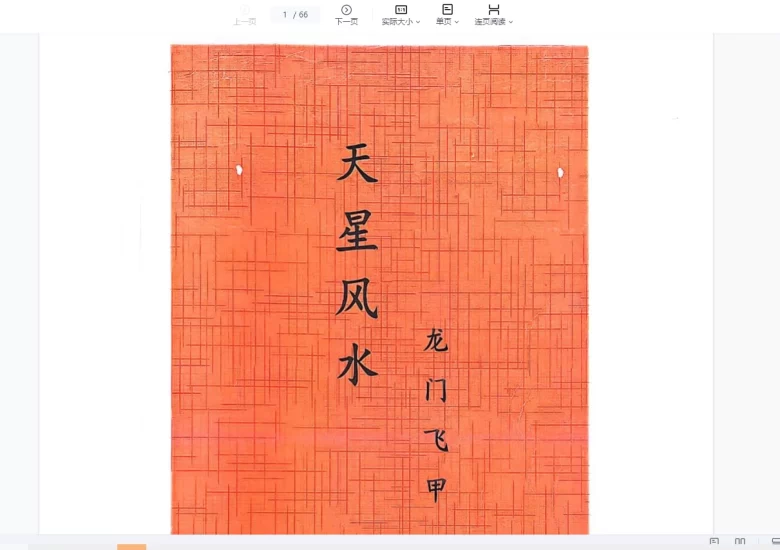 上一页
1 / 66
下一页
实际大小
单页
连页阅读
天星风水
龙门飞甲